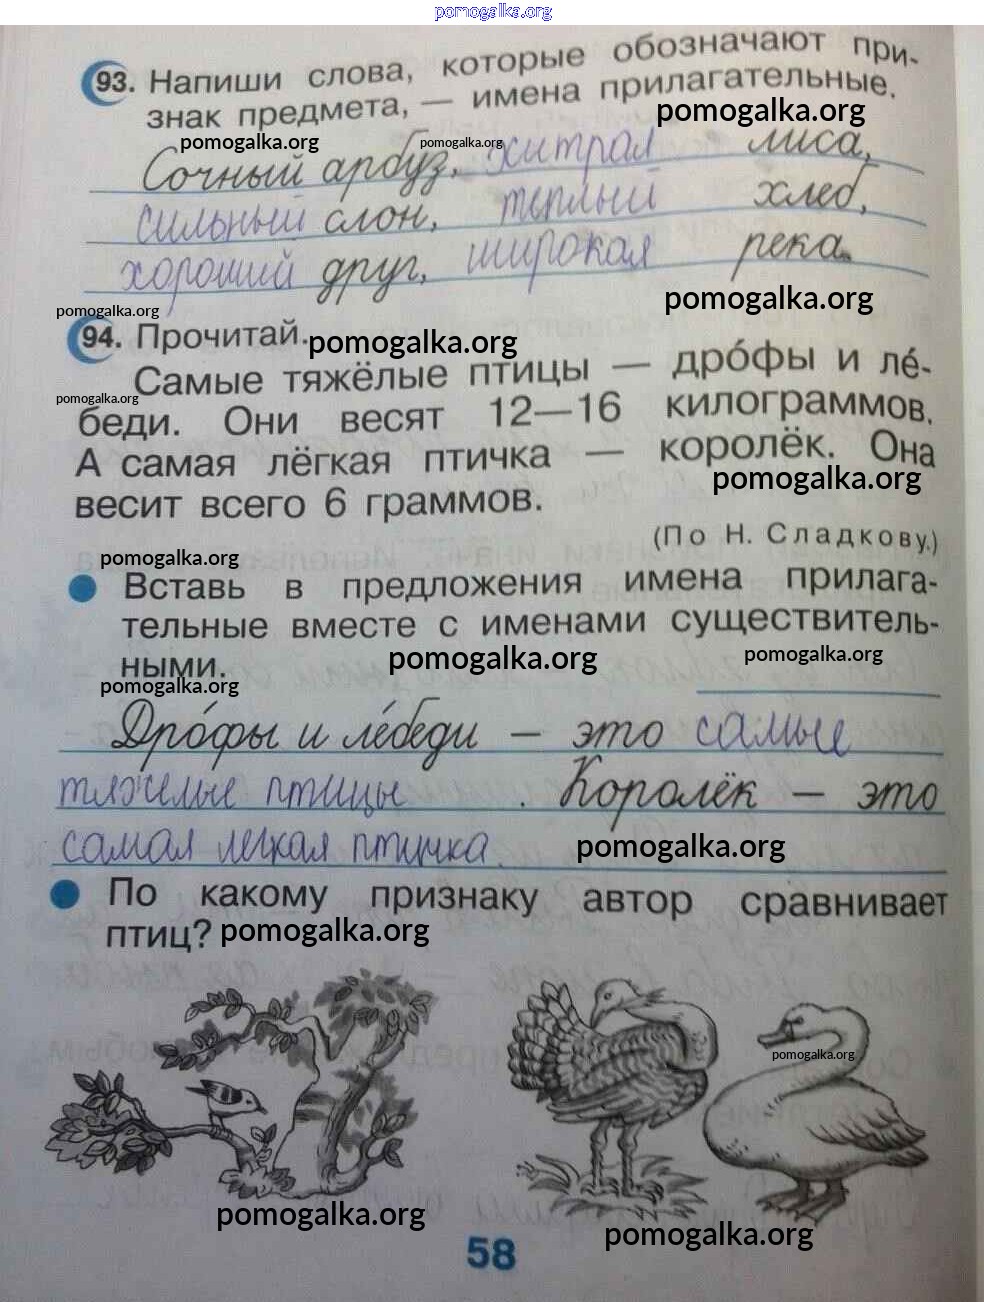 pomogalka.org
93. Напиши слова, которые обозначают при-
знак предмета, — имена прилагательные.
pomogalka.org
pomogalka.org pomogalka.org
Сочный арбуз, хитрая лиса,
сильный слон, теплый хлеб,
хороший друг, широкая река.
pomogalka.org
pomogalka.org
94. Прочитай.
pomogalka.org
Самые тяжёлые птицы — дро́фы и ле́-
pomogalka.org
беди. Они весят 12—16 килограммов.
А самая лёгкая птичка — королёк. Она
pomogalka.org
весит всего 6 граммов.
(По Н. Сладкову.)
pomogalka.org
Вставь в предложения имена прилага-
тельные вместе с именами существитель-
ными.
pomogalka.org pomogalka.org
pomogalka.org
Дро́фы и ле́беди — это самые
тяжелые птицы. Королёк — это
самая легкая птичка.
pomogalka.org
По какому признаку автор сравнивает
птиц?
pomogalka.org
pomogalka.org
pomogalka.org
pomogalka.org
58